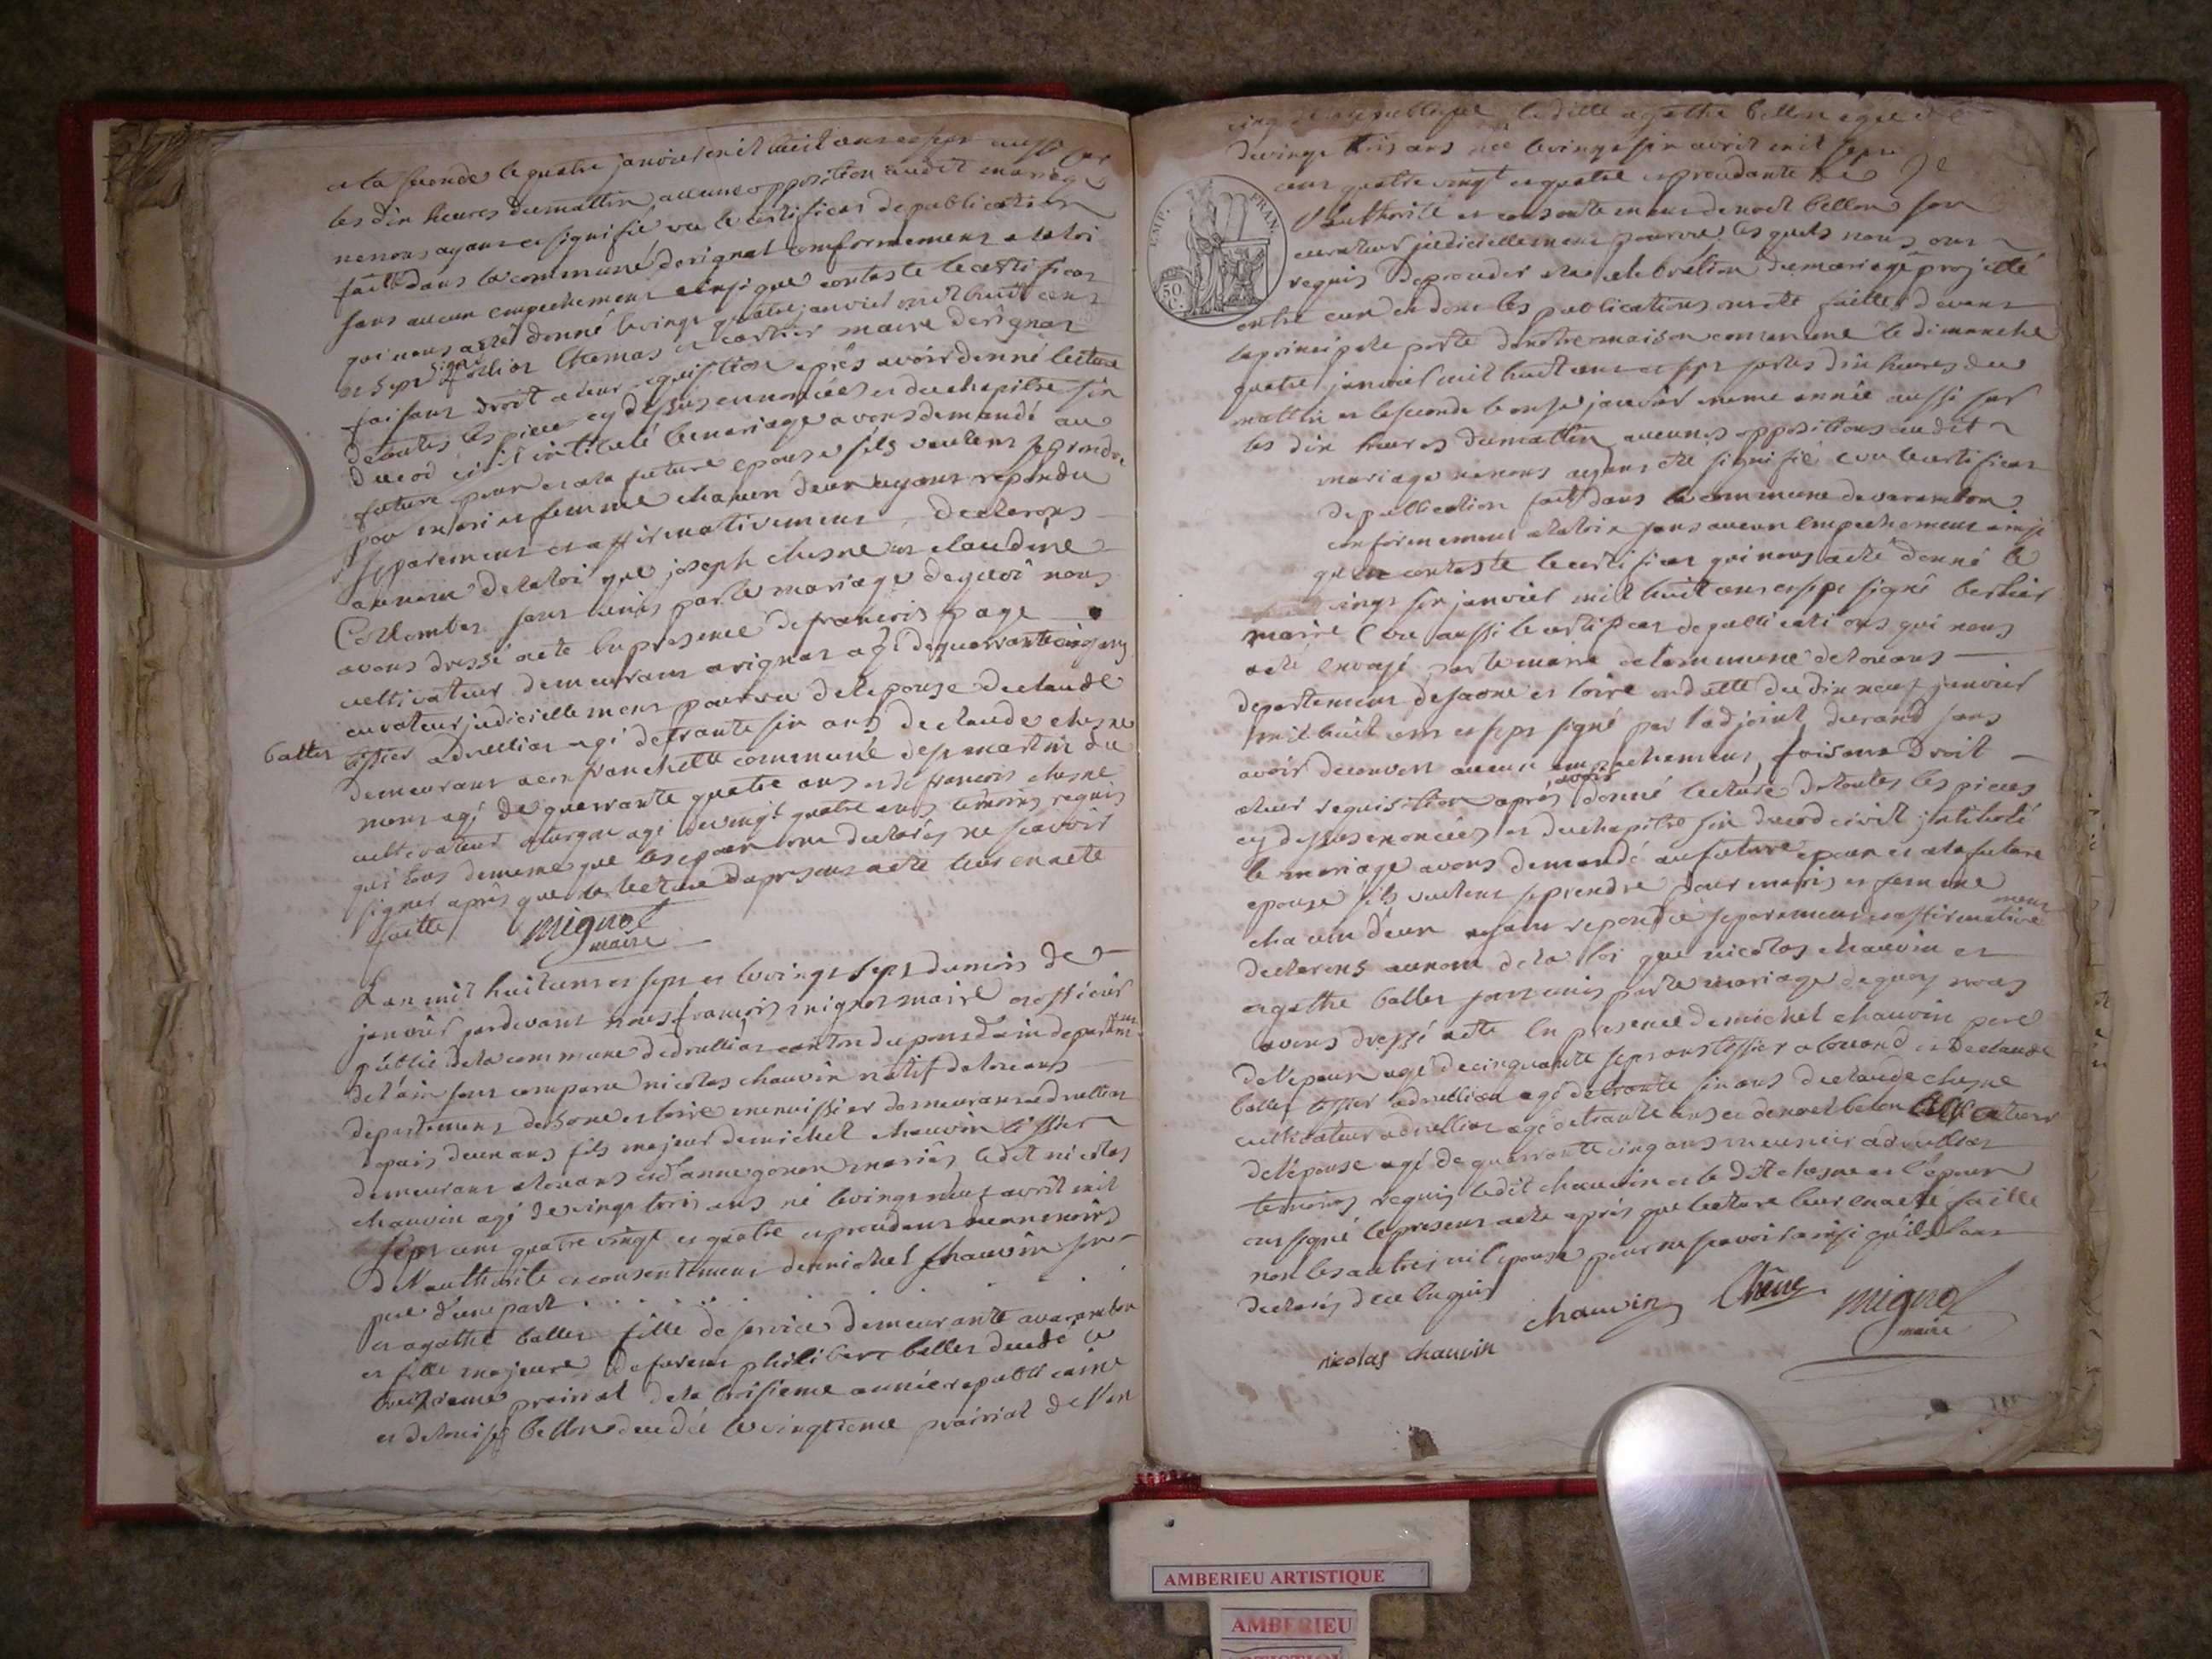 et la seconde le quatre janvier mil huit cent et sept aussi sur
les dix heures du mattin aucune opposition audit mariage
ne nous ayant été signifié vu le certificat de publication
faitte dans la commune de rignat conformement a la loi
sans aucun empechement ainsi que conste le certificat
qui nous a été donné le vingt quatre janvier mil huit cent
et sept signé cartier maire de rignat
faisant droit a leur requisition après avoir donné lecture
de toutes les pieces cy dessus enoncées et du chapitre six
du cod civil intitulé le mariage avons demandé au
future epoux et a la future epouse s'ils veulent se prendre
pour mari et femme chacun d'eux ayant repondu
separement et affirmativement declarons
au nom de la loi que joseph chesne et claudine
Collomber sont unis par le mariage de quoi nous
avons dressé acte en presence de francois page
cultivateur demeurant a rignat agé de quarrante cinq ans
curateur judiciellement pourvu de l'epouse de claude
ballet tissier a druillat agé de trante six ans de claude chesne
demeurant a confranchette commune de st martin du
mont agé de quarrante quatre ans et de francois chesne
cultivateur agé de vingt quatre ans temoins requis
qui tous de meme que les epoux ont declarés ne scavoir
signer après que lecture du present acte leur en a eté
faitte
mignot
maire
ballet
L'an mil huit cent et sept et le vingt sept du mois de
janvier pardevant nous francois mignot maire et officier
public de la commune de druillat canton du pont d'ain departement
de l'ain sont comparu nicolas chauvin natif de louans
departement de sone et loire menuissier demeurant a druillat
depuis deux ans fils majeur de michel chauvin tissier
demeurant a louans et d'anne gonon mariés ledit nicolas
chauvin agé de vingt trois ans né le vingt neuf avril mil
sept cent quatre vingt et quatre et procedant neanmoins
de l'authorité et consentement de michel chauvin son
pere d'une part
et agathe ballet fille de service demeurante a varambon
et fille majeure de defunt philibert ballet decedé le
prairial de la troisieme année republicaine
et de louise bellon decedée le vingtieme prairial de l'an
cinq de republique ladille agathe ballet agée de
de vingt trois ans née le vingt six avril mil sept
cent quatre vingt et quatre et procedante de
l'authorité et consentement de noel bellon son
curateur judiciellement pourvu lesquels nous ont
requis de proceder a la celebration du mariage projetté
entre eux et dont les publications ont été faittes devant
la principale porte de notre maison commune le dimanche
quatre janvier mil huit cent et sept sur les dix heures du
mattin et la seconde le onse janvier meme année aussi sur
les dix heures du mattin aucunes oppositions audit
mariage ne nous ayant été signifié vu le certificat
de publication fait dans la commune de varambon
conformement a la loi sans aucun empechement ainsi
que conste le certificat qui nous a été donné le
vingt six janvier mil huit cent et sept signé berlier
maire vu aussi le certificat de publications qui nous
a eté envoyé par le maire de la commune de louans
departement de saone et loire en datte du dix neuf janvier
mil huit cent et sept signé par l'adjoint durand sans
avoir decouvert aucun empechement, faisant Droit
a leur requisition après avoir donné lecture de toutes les pieces
cy dessus enoncées et du chapitre six du cod civil jntitulé
le mariage avons demandé au future epoux et a la future
epouse s'ils veulent se prendre pour maris et femme
chacun d'eux ayant repondu separement et affirmativement
declarons au nom de la loi que nicolas chauvin et
agathe ballet sont unis par le mariage de quoy nous
avons dressé acte en presence de michel chauvin pere
de l'epoux agé de cinquante sept ans tissier a louand et De claude
ballet tissier a druillat agé de trante six ans de claude chesne
cultivateur a druillat agé de trante ans et de noel belon curateur
de l'epouse agé de quarrante cinq ans meunier a druillat
temoins requis ledit chauvin et le dit chesne et l'epoux
ont signé le present acte après que lecture leur en a eté faitte
non les autres ni l'epouse pour ne scavoir ainsi qu'ils l'ont
declarés de ce enquis
chauvin Chêne mignot
maire
nicolas chauvin
EMP. FRAN.
50 C.
AMBERIEU ARTISTIQUE
AMBERIEU